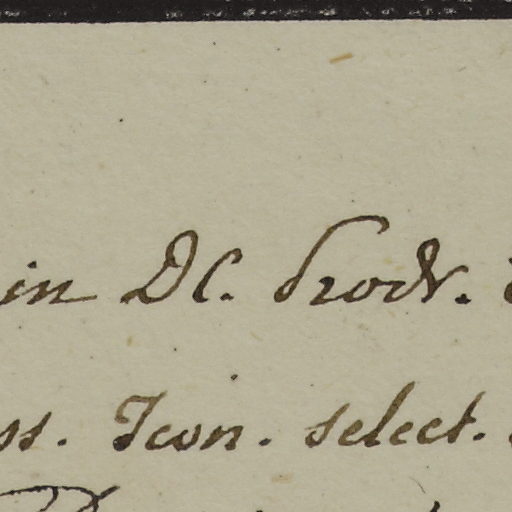 in DC. Prodr.
ss. Icon. select.